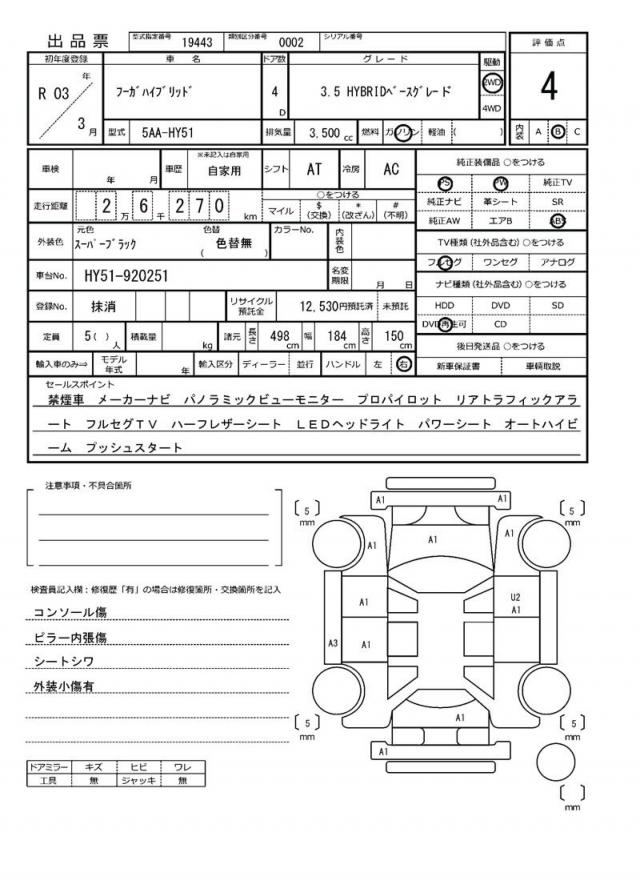 出品票 型式指定番号 19443 類別区分番号 0002 シリアル番号
初年度登録 車 名 ドア数 グレード 駆動 評価点
R 03 年 3 月 フーガハイブリッド 4 D 3.5 HYBRIDベースグレード 2WD 4WD 4
型式 5AA-HY51 排気量 3,500 cc 燃料 ガソリン 軽油 ( ) 内装 A B C
車検 年 月 車歴 ※未記入は自家用 自家用 シフト AT 冷房 AC 純正装備品 ○をつける
PS PW 純正TV
走行距離 2 万 6 千 2 7 0 km ○をつける
マイル $(交換) *(改ざん) #(不明)
純正ナビ 革シート SR
純正AW エアB ABS
外装色 元色 スーパーブラック 色替 ( 色替無 ) カラーNo. 内装色
TV種類(社外品含む)○をつける
フルセグ ワンセグ アナログ
車台No. HY51-920251 名変期限 月 日
ナビ種類(社外品含む)○をつける
登録No. 抹消 リサイクル預託金 12,530円預託済 未預託
HDD DVD SD
DVD再生可 CD
定員 5( ) 人 積載量 kg 諸元 長さ 498 cm 幅 184 cm 高さ 150 cm
後日発送品 ○をつける
輸入車のみ⇒ モデル年式 年 輸入区分 ディーラー 並行 ハンドル 左 右
新車保証書 車輌取説
セールスポイント
禁煙車 メーカーナビ パノラミックビューモニター プロパイロット リアトラフィックアラ
ート フルセグTV ハーフレザーシート LEDヘッドライト パワーシート オートハイビ
ーム プッシュスタート
注意事項・不具合箇所
検査員記入欄:修復歴「有」の場合は修復箇所・交換箇所を記入
コンソール傷
ピラー内張傷
シートシワ
外装小傷有
ドアミラー キズ ヒビ ワレ
工具 無 ジャッキ 無
A1 A1
5 mm 5 mm
A1 A1 A1
A1 U2
A1
A3 A1
A1
5 mm 5 mm
A1
mm